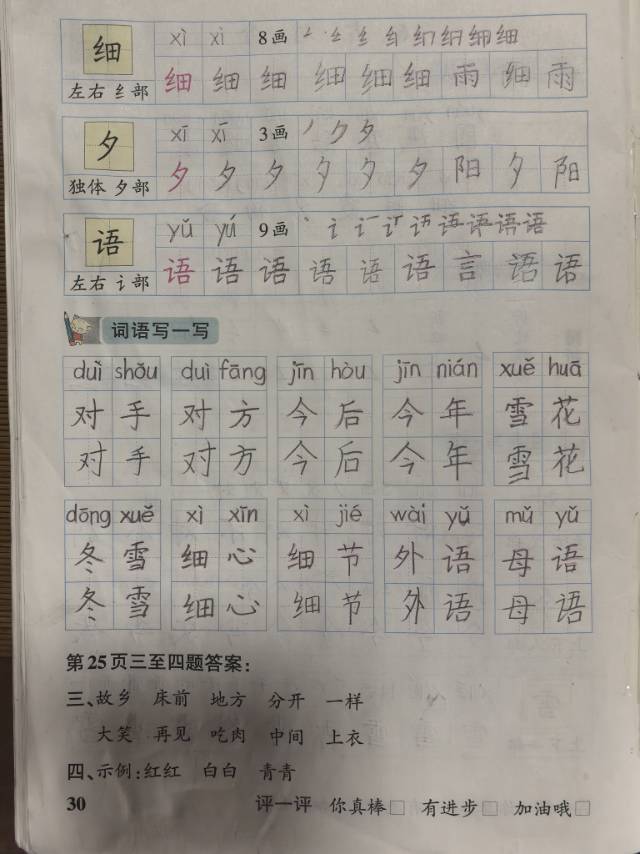 细 xì xì 8画 纟 纟 纟 纟 纠 细 细 细
左右 纟部 细 细 细 细 细 细 雨 细 雨
夕 xī xī 3画 丿 ク 夕
独体 夕部 夕 夕 夕 夕 夕 夕 阳 夕 阳
语 yǔ yǔ 9画 丶 讠 语 语 语
左右 讠部 语 语 语 语 语 语 言 语 语
词语写一写
duì shǒu duì fāng jīn hòu jīn nián xuě huā
对手 对方 今后 今年 雪花
对手 对方 今后 今年 雪花
dōng xuě xì xīn xì jié wài yǔ mǔ yǔ
冬雪 细心 细节 外语 母语
冬雪 细心 细节 外语 母语
第25页三至四题答案:
三、故乡 床前 地方 分开 一样
大笑 再见 吃肉 中间 上衣
四、示例:红红 白白 青青
30 评一评 你真棒□ 有进步□ 加油哦□